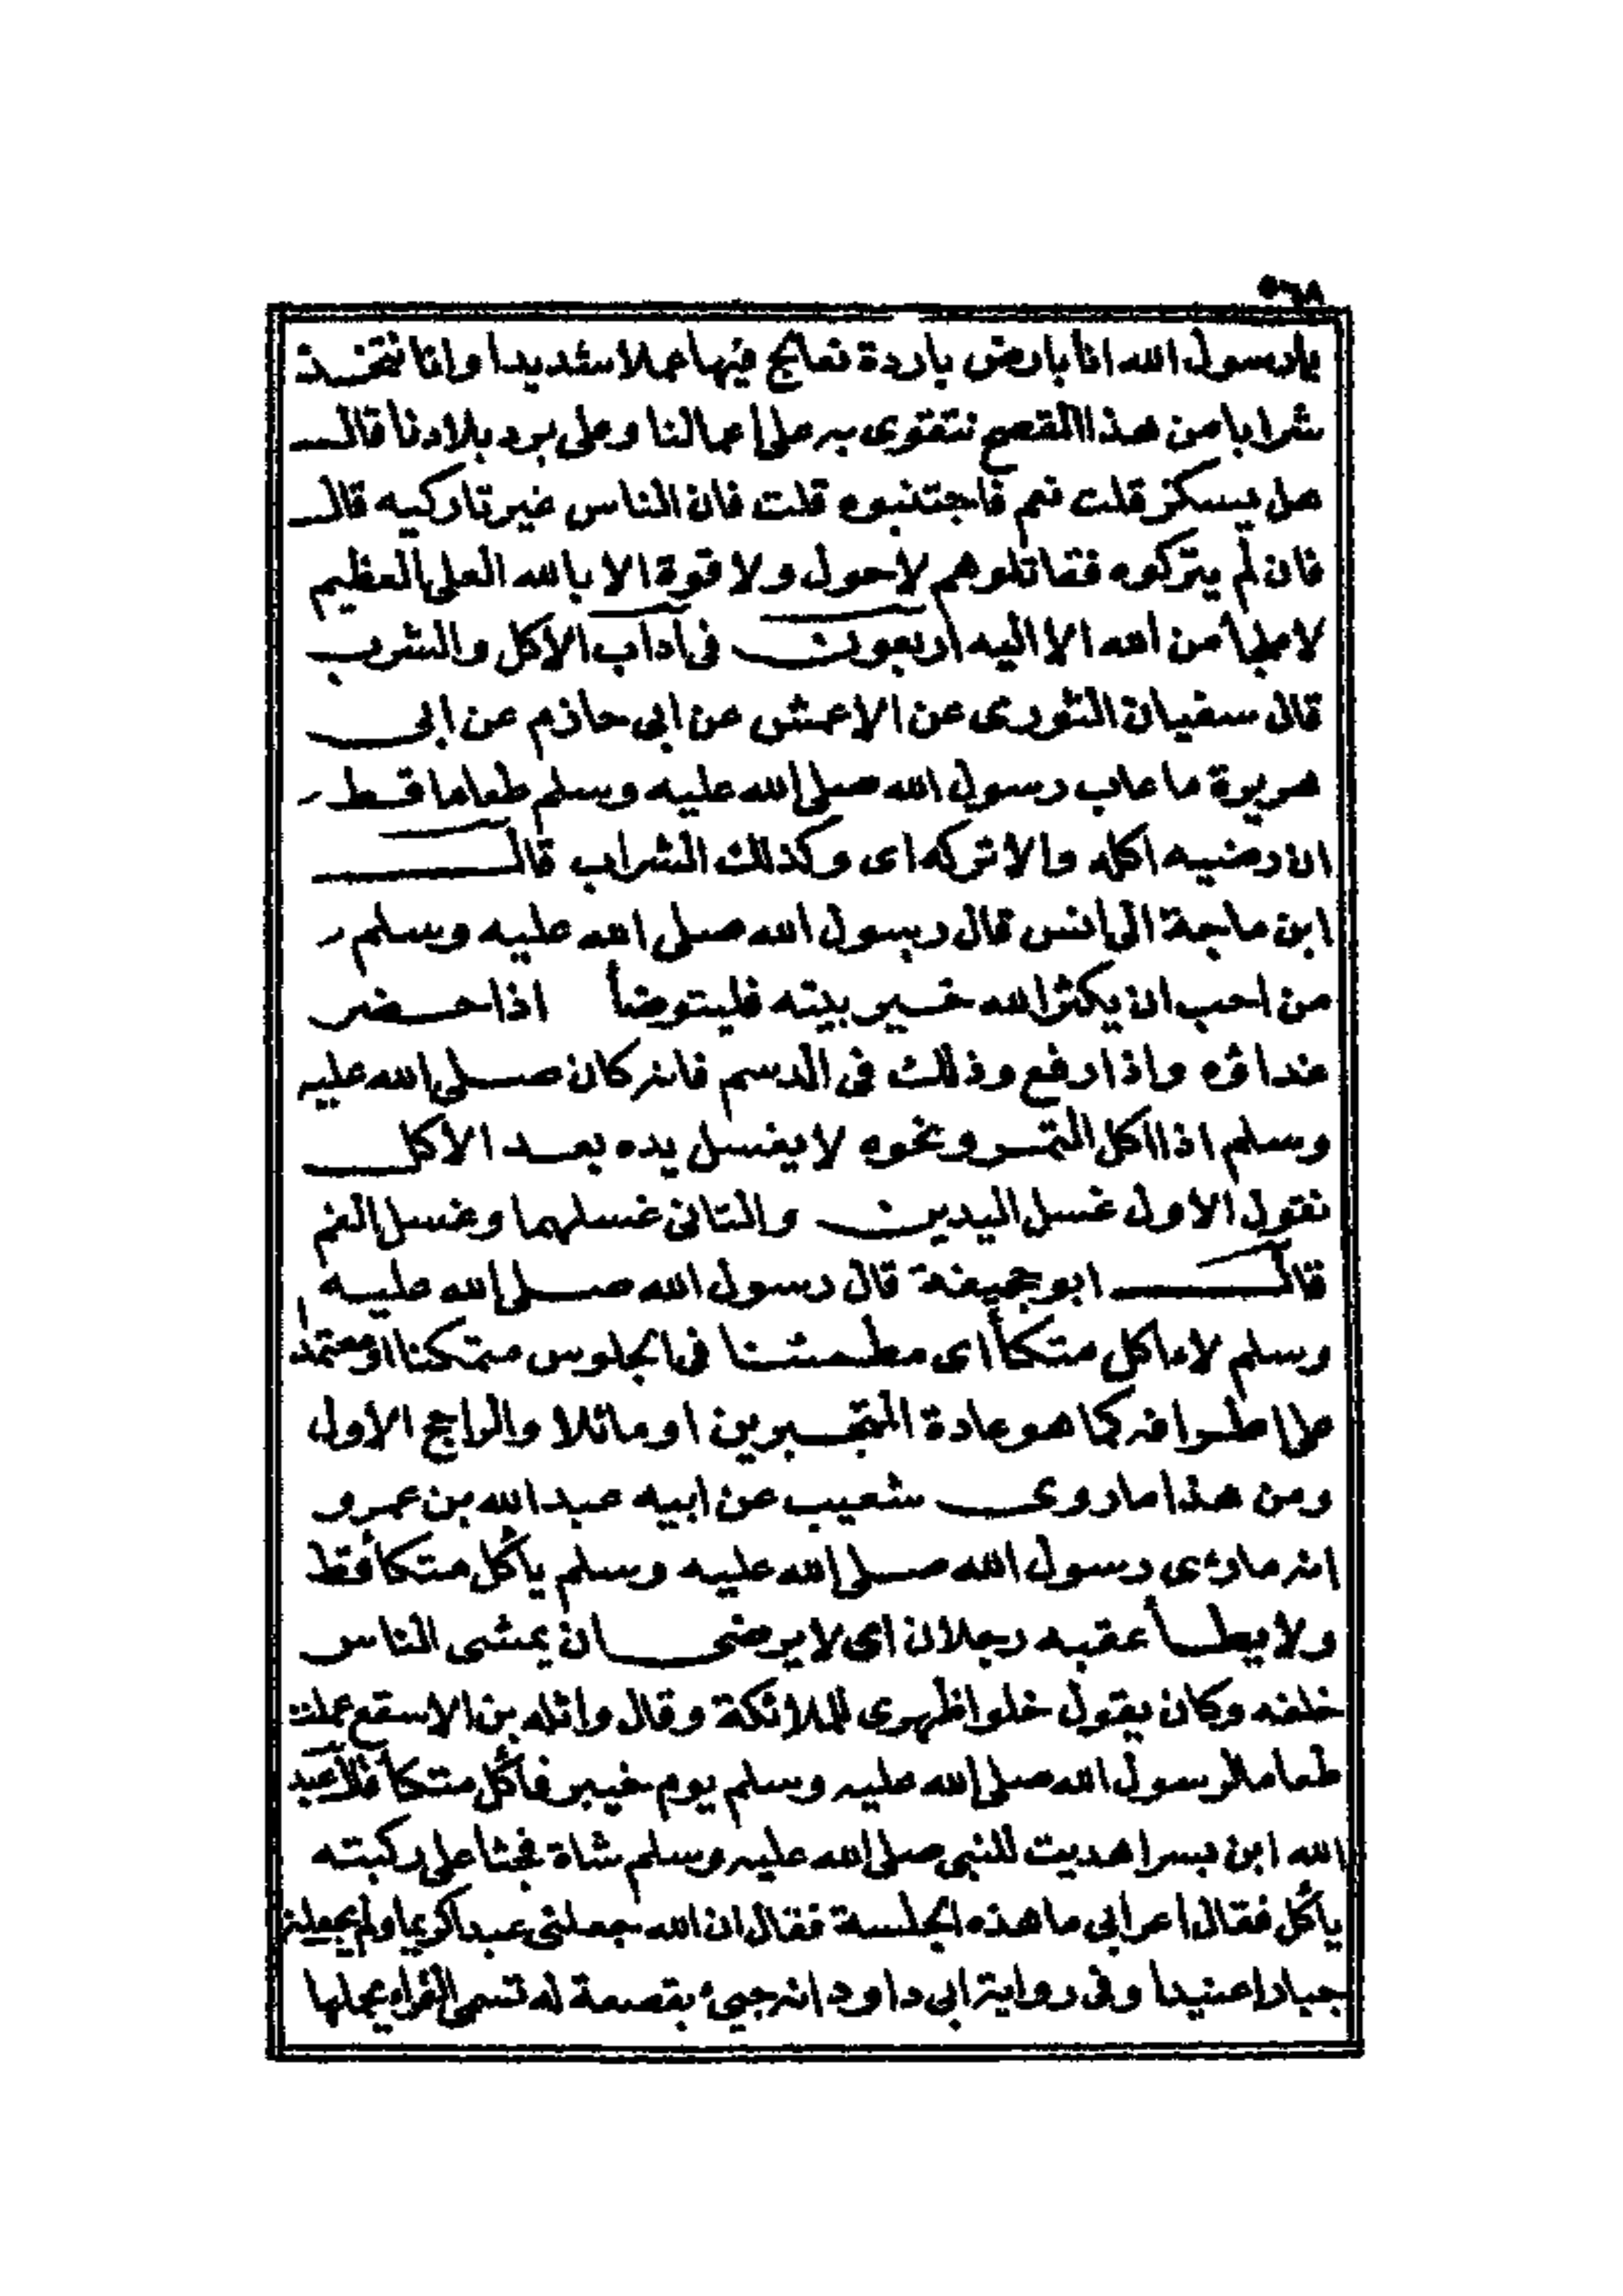 ٥٦٨
يا رسول الله انا بارض باردة نعالج فيها عملا شديدا وانا نتخذ
شرابا من هذا القمح نتقوى به على اعمالنا وعلى برد بلادنا قال
هل يسكر قلت نعم فاجتنبوه قلت فان الناس غير تاركيه قال
فان لم يتركوه فقاتلوهم لاحول ولا قوة الا بالله العلى العظيم
لا ملجأ من الله الا اليه اربعون في آداب الاكل والشرب
قال سفيان الثورى عن الاعمش عن ابى حازم عن ابى
هريرة ما عاب رسول الله صلى الله عليه وسلم طعاما قط
ان رضيه اكله والا تركه اى وكذلك الشراب قال
ابن ماجة الى انس قال رسول الله صلى الله عليه وسلم
من احب ان يكثر الله خير بيته فليتوضأ اذا حضر
غداؤه واذا رفع وذلك في الدسم فانه كان صلى الله عليه
وسلم اذا اكل التمر ونحوه لا يغسل يده بعد الاكل
نقول الاول غسل اليدين والثانى غسلهما وغسل الفم
قال ابو جحيفة قال رسول الله صلى الله عليه
وسلم لا ءاكل متكأ اى مطمئنا في الجلوس متمكنا او معتمدا
على اطرافه كما هو عادة المتجبرين او مائلا والراجح الاول
ومن هذا ما روى شعيب عن ابيه عبد الله بن عمرو
انه ما رؤى رسول الله صلى الله عليه وسلم يأكل متكأ قط
ولا يطأ عقبه رجلان اى لا يرضى ان يمشى الناس
خلفه وكان يقول خلوا ظهرى للملائكة وقال واثلة بن الاسقع عملت
طعاما لرسول الله صلى الله عليه وسلم يوم خيبر فأكل متكأ عبد
الله ابن بسر اهديت للنبى صلى الله عليه وسلم شاة فجثا على ركبته
يأكل فقال اعرابى ما هذه الجلسة فقال ان الله جعلنى عبدا كريما ولم يجعلنى
جبارا عنيدا وفى رواية ابى داود انه جيء بقصعة له تسمى الغراء يحملها